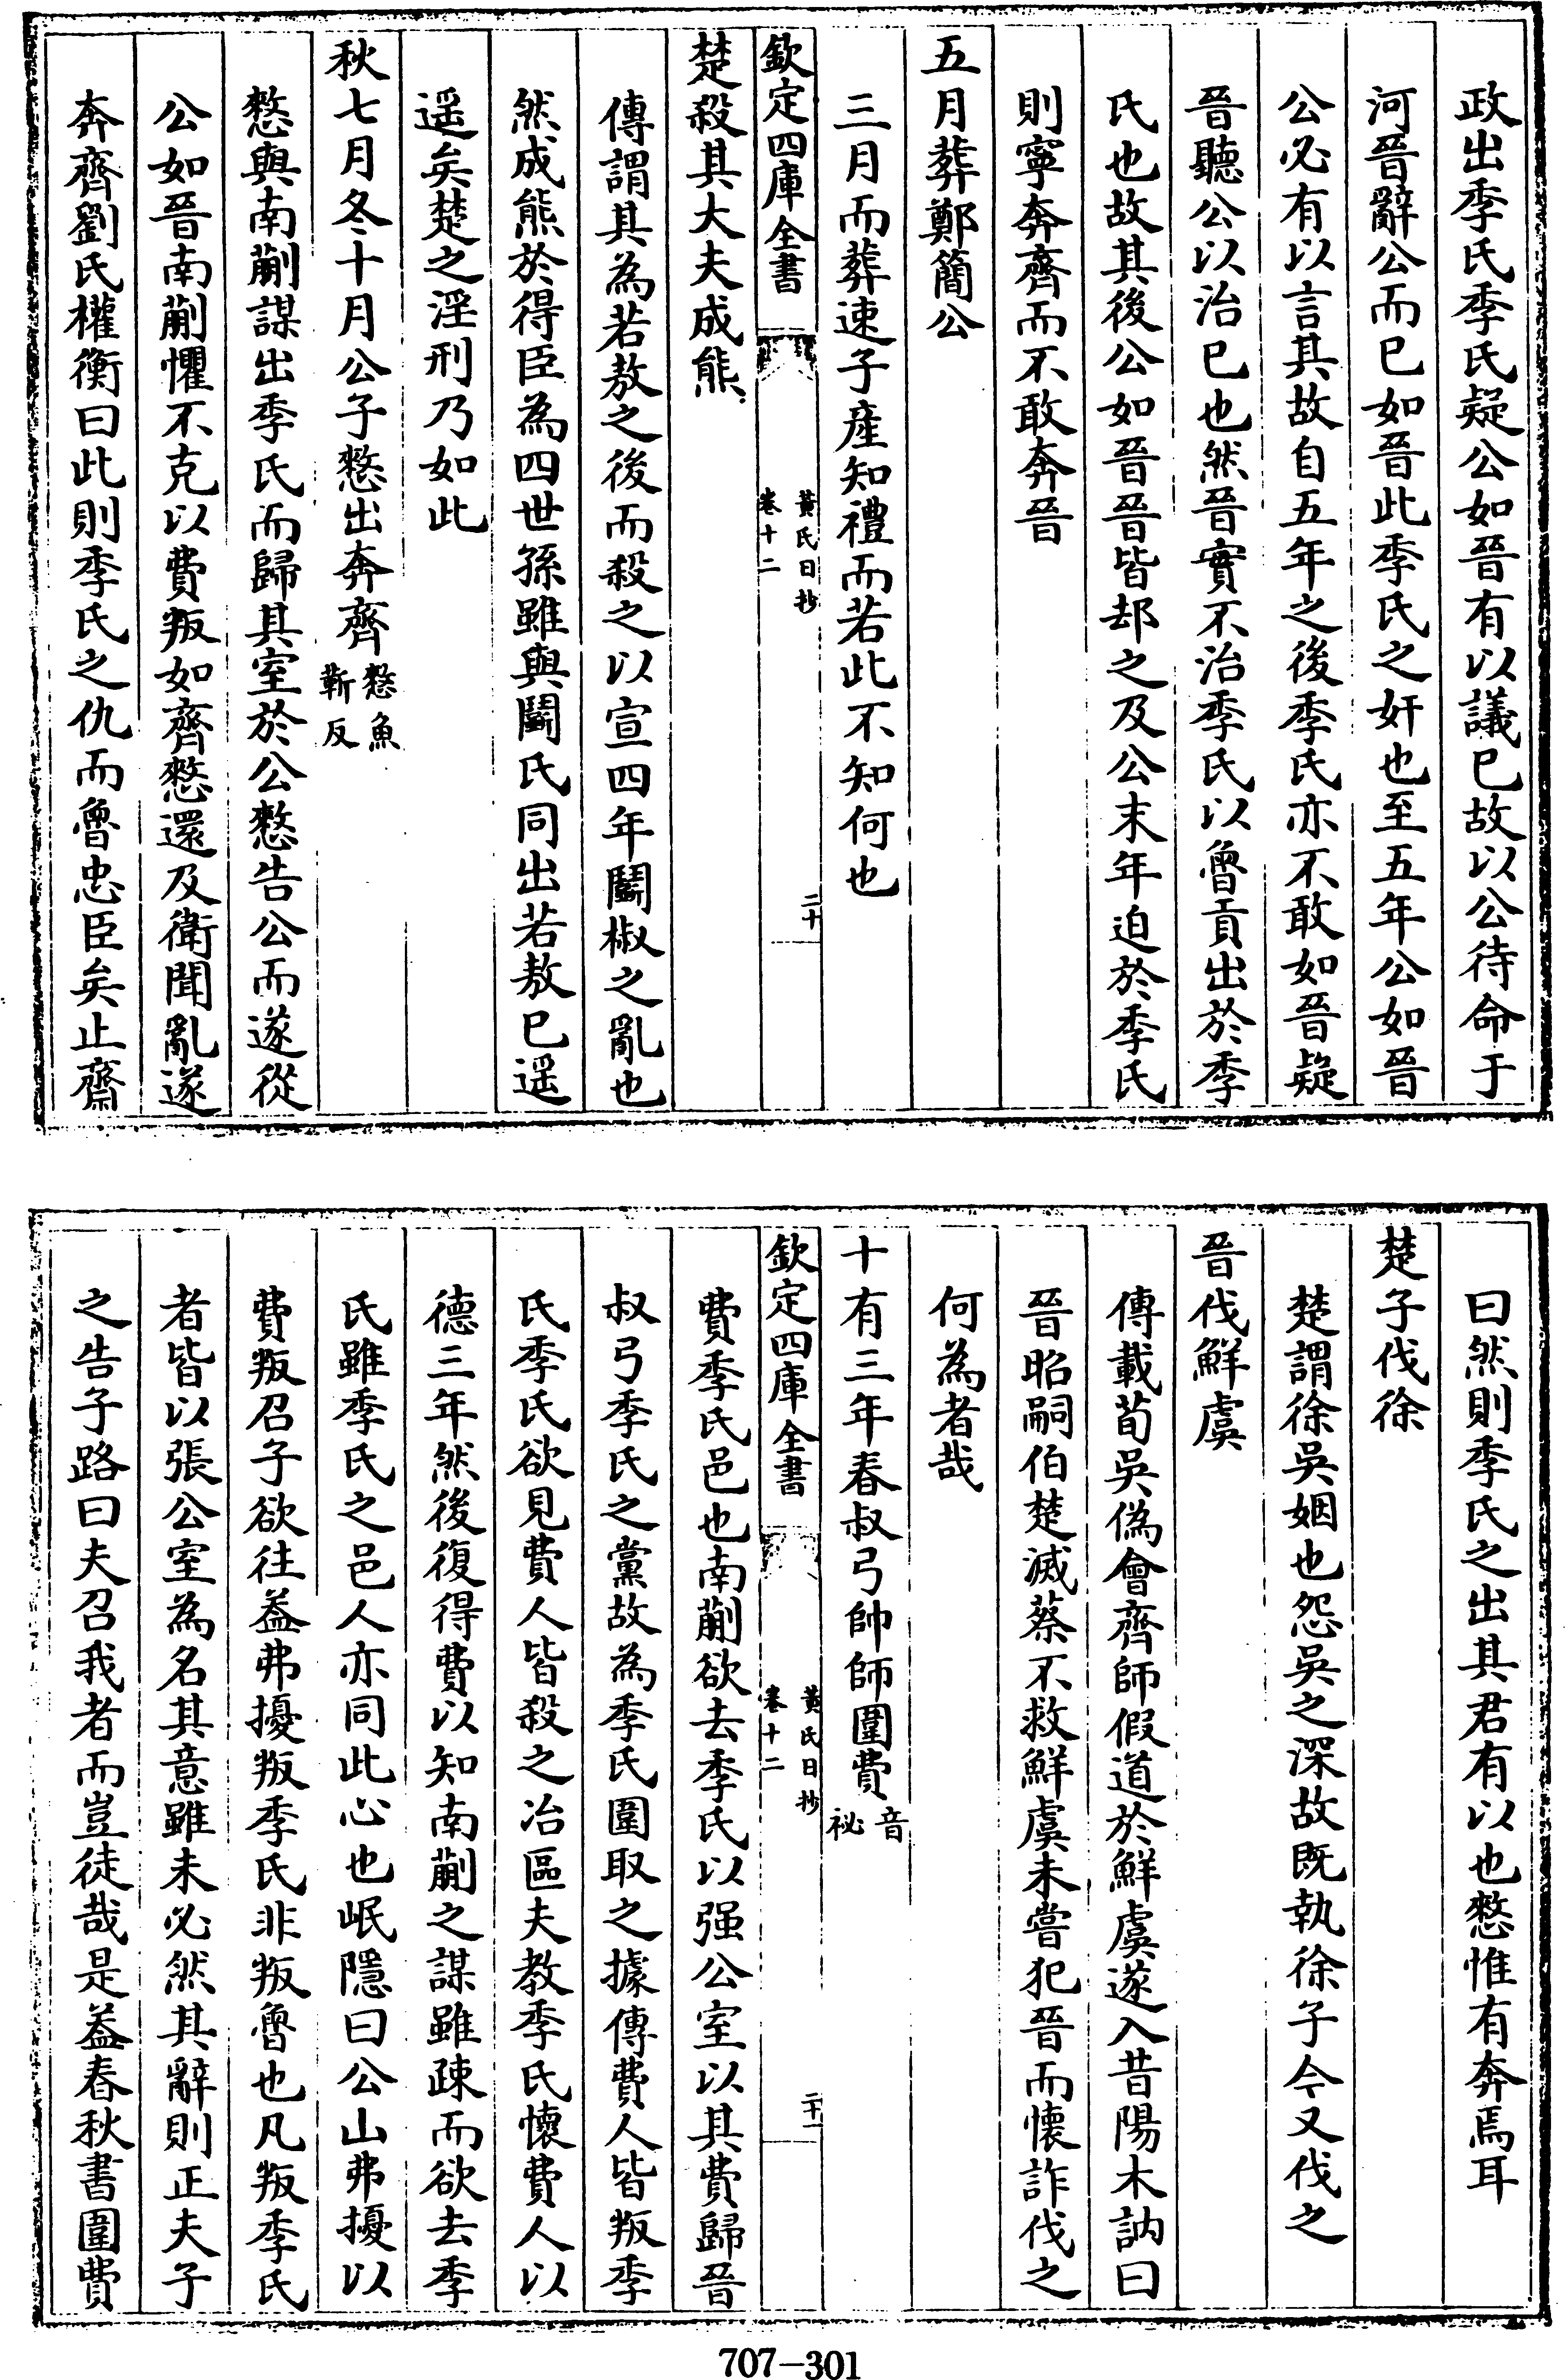 政出季氏季氏疑公如晉有以議已故以公待命于
河晉辭公而已如晉此季氏之奸也至五年公如晉
公必有以言其故自五年之後季氏亦不敢如晉疑
晉聽公以治已也然晉實不治季氏以魯貢出於季
氏也故其後公如晉晉皆却之及公末年迫於季氏
則寧奔齊而不敢奔晉
五月葬鄭簡公
三月而葬速子產知禮而若此不知何也
欽定四庫全書
黃氏日抄
卷十二
二十
楚殺其大夫成熊
傳謂其為若敖之後而殺之以宣四年鬭椒之亂也
然成熊於得臣為四世孫雖與鬭氏同出若敖已遥
遥矣楚之淫刑乃如此
秋七月冬十月公子憗出奔齊憗魚
靳反
憗與南蒯謀出季氏而歸其室於公憗告公而遂從
公如晉南蒯懼不克以費叛如齊憗還及衛聞亂遂
奔齊劉氏權衡曰此則季氏之仇而魯忠臣矣止齋
曰然則季氏之出其君有以也憗惟有奔焉耳
楚子伐徐
楚謂徐吳姻也怨吳之深故既執徐子今又伐之
晉伐鮮虞
傳載荀吳偽會齊師假道於鮮虞遂入昔陽木訥曰
晉昭嗣伯楚滅蔡不救鮮虞未嘗犯晉而懷詐伐之
何為者哉
十有三年春叔弓帥師圍費音
祕
欽定四庫全書
黃氏日抄
卷十二
二十一
費季氏邑也南蒯欲去季氏以强公室以其費歸晉
叔弓季氏之黨故為季氏圍取之據傳費人皆叛季
氏季氏欲見費人皆殺之冶區夫教季氏懷費人以
德三年然後復得費以知南蒯之謀雖疎而欲去季
氏雖季氏之邑人亦同此心也岷隱曰公山弗擾以
費叛召子欲往葢弗擾叛季氏非叛魯也凡叛季氏
者皆以張公室為名其意雖未必然其辭則正夫子
之告子路曰夫召我者而豈徒哉是葢春秋書圍費
707-301